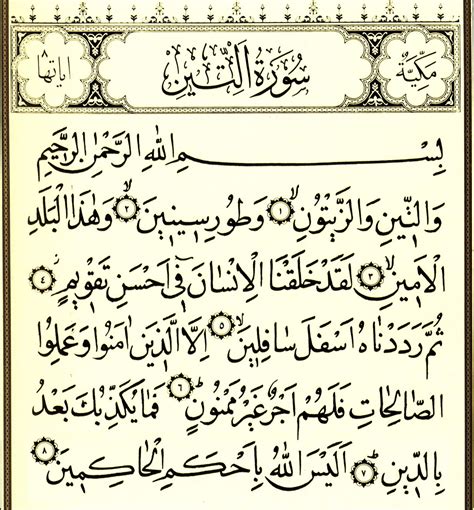 مكية سورة التين آياتها ٨
بِسْمِ اللهِ الرَّحْمٰنِ الرَّحِيمِ
وَالتِّينِ وَالزَّيْتُونِۙ ١ وَطُورِ سِينِينَۙ ٢ وَهٰذَا الْبَلَدِ
الْاَمِينِۙ ٣ لَقَدْ خَلَقْنَا الْاِنْسَانَ فِٓي اَحْسَنِ تَقْوِيمٍۘ ٤
ثُمَّ رَدَدْنَاهُ اَسْفَلَ سَافِلِينَۙ ٥ اِلَّا الَّذِينَ اٰمَنُوا وَعَمِلُوا
الصَّالِحَاتِ فَلَهُمْ اَجْرٌ غَيْرُ مَمْنُونٍۜ ٦ فَمَا يُكَذِّبُكَ بَعْدُ
بِالدِّينِۜ ٧ اَلَيْسَ اللهُ بِاَحْكَمِ الْحَاكِمِينَ ٨